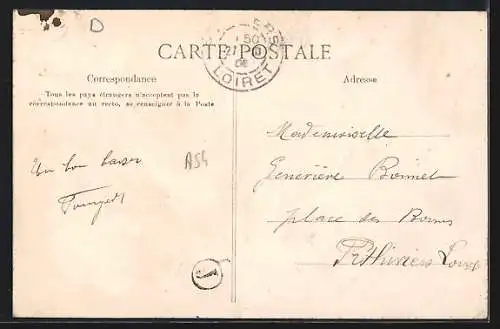 CARTE POSTALE
Correspondance
Tous les pays étrangers n'acceptent pas la
correspondance au recto, se renseigner à la Poste
Adresse
LOIRET
D
A54
Un bon baiser
Mademoiselle
Geneviève Bonnet
place des Bornes
Pithiviers Loiret